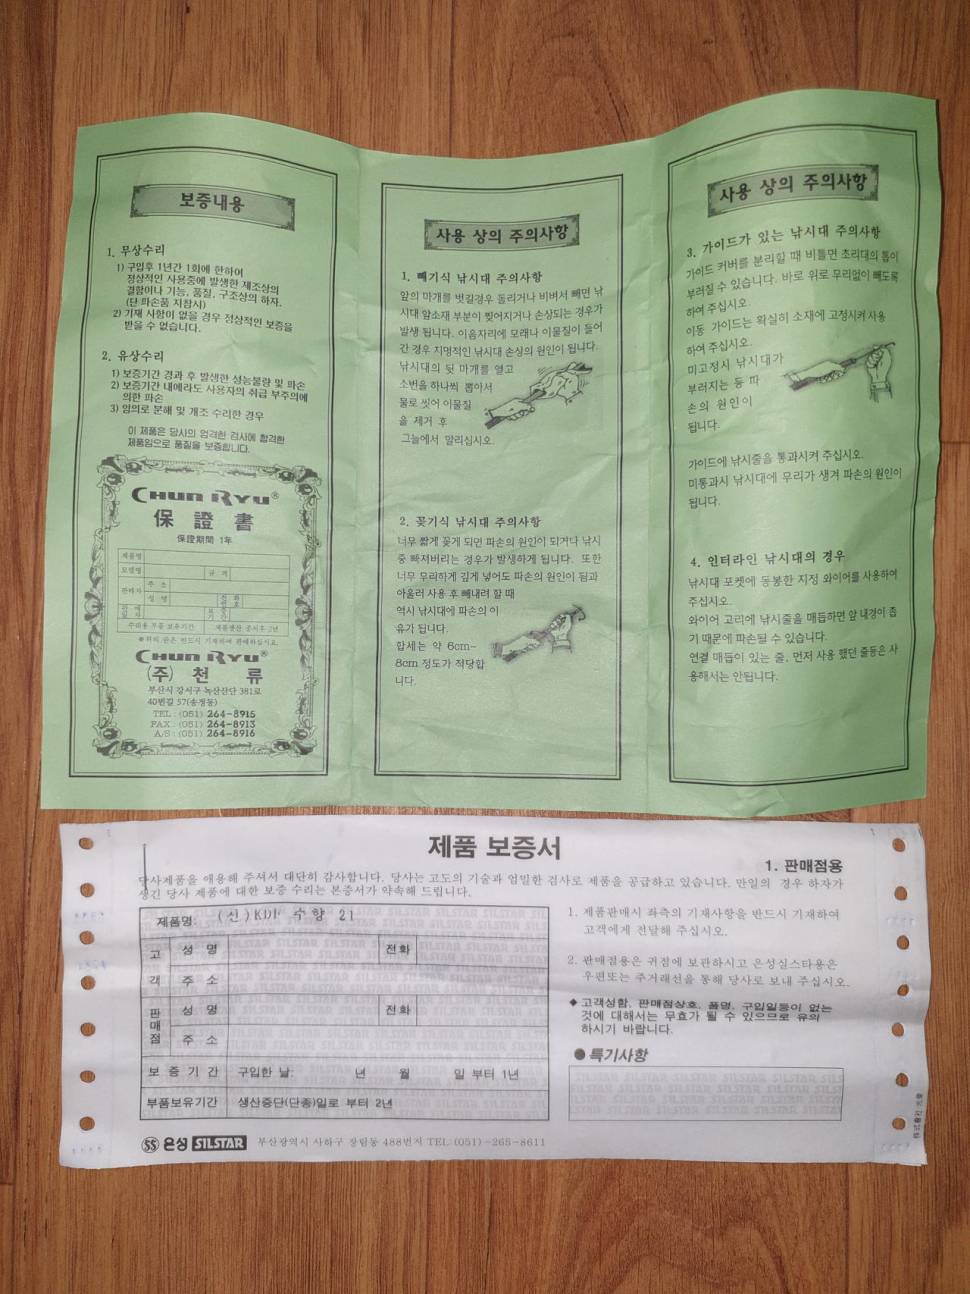 보증내용
1. 무상수리
1) 구입후 1년간 1회에 한하여
정상적인 사용중에 발생한 제조상의
결함이나 기능, 품질, 구조상의 하자.
(단 파손품 지참시)
2) 기재 사항이 없을 경우 정상적인 보증을
받을 수 없습니다.
2. 유상수리
1) 보증기간 경과 후 발생한 성능불량 및 파손
2) 보증기간 내에라도 사용자의 취급 부주의에
의한 파손
3) 임의로 분해 및 개조 수리한 경우
이 제품은 당사의 엄격한 검사에 합격한
제품임으로 품질을 보증합니다.
CHUN RYU®
保 證 書
保證期間 1年
제품명
모델명 규 격
판매자 주 소
성 명 전화번호
수리용 부품 보유기간 제품생산 종지후 2년
※위의 란은 반드시 기재하여 판매하십시오.
CHUN RYU®
(주) 천 류
부산시 강서구 녹산산단 381로
40번길 57(송정동)
TEL : (051) 264-8915
FAX : (051) 264-8913
A/S : (051) 264-8916
사용 상의 주의사항
1. 빼기식 낚시대 주의사항
앞의 마개를 벗길경우 돌리거나 비벼서 빼면 낚
시대 앞소재 부분이 찢어지거나 손상되는 경우가
발생 됩니다. 이음자리에 모래나 이물질이 들어
간 경우 치명적인 낚시대 손상의 원인이 됩니다.
낚시대의 뒷 마개를 열고
소번을 하나씩 뽑아서
물로 씻어 이물질
을 제거 후
그늘에서 말리십시오.
2. 꽂기식 낚시대 주의사항
너무 짧게 꽂게 되면 파손의 원인이 되거나 낚시
중 빠져버리는 경우가 발생하게 됩니다. 또한
너무 무리하게 깊게 넣어도 파손의 원인이 됨과
아울러 사용 후 빼내려 할 때
역시 낚시대에 파손의 이
유가 됩니다.
합세는 약 6cm-
8cm 정도가 적당합
니다.
사용 상의 주의사항
3. 가이드가 있는 낚시대 주의사항
가이드 커버를 분리할 때 비틀면 초리대의 톱이
부러질 수 있습니다. 바로 위로 무리없이 빼도록
하여 주십시오.
이동 가이드는 확실히 소재에 고정시켜 사용
하여 주십시오.
미고정시 낚시대가
부러지는 등 파
손의 원인이
됩니다.
가이드에 낚시줄을 통과시켜 주십시오.
미통과시 낚시대에 무리가 생겨 파손의 원인이
됩니다.
4. 인터라인 낚시대의 경우
낚시대 포켓에 동봉한 지정 와이어를 사용하여
주십시오.
와이어 고리에 낚시줄을 매듭하면 앞 내경이 좁
기 때문에 파손될 수 있습니다.
연결 매듭이 있는 줄, 먼저 사용 했던 줄등은 사
용해서는 안됩니다.
제품 보증서
1. 판매점용
당사제품을 애용해 주셔서 대단히 감사합니다. 당사는 고도의 기술과 엄밀한 검사로 제품을 공급하고 있습니다. 만일의 경우 하자가
생긴 당사 제품에 대한 보증 수리는 본증서가 약속해 드립니다.
제품명: (신)KDI 수향 21
고객 성 명 전화
주 소
판매점 성 명 전화
주 소
보 증 기 간 구입한 날: 년 월 일 부터 1년
부품보유기간 생산중단(단종)일로 부터 2년
1. 제품판매시 좌측의 기재사항을 반드시 기재하여
고객에게 전달해 주십시오.
2. 판매점용은 귀점에 보관하시고 은성실스타용은
우편또는 주거래선을 통해 당사로 보내 주십시오.
◆ 고객성함, 판매점상호, 품명, 구입일등이 없는
것에 대해서는 무효가 될 수 있으므로 유의
하시기 바랍니다.
● 특기사항
SILSTAR SILSTAR SILSTAR SILSTAR
은성 SILSTAR 부산광역시 사하구 장림동 488번지 TEL:(051)-265-8611